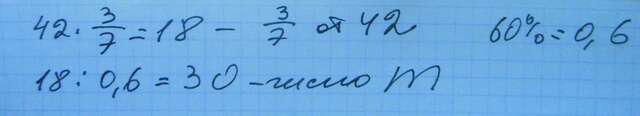 42 · 3/7 = 18 – 3/7 от 42 60% = 0,6
18 : 0,6 = 30 – число m